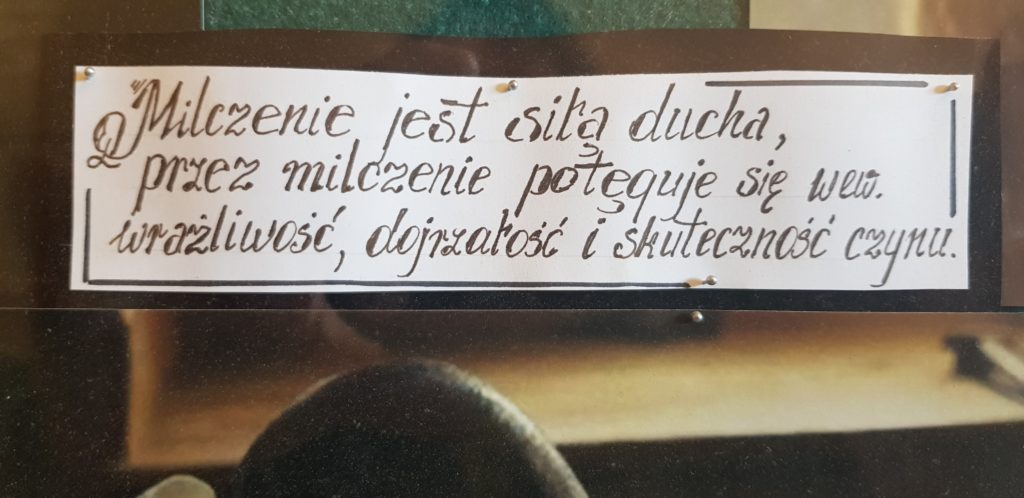 "Milczenie jest siłą ducha,
przez milczenie potęguje się wew.
wrażliwość, dojrzałość i skuteczność czynu.